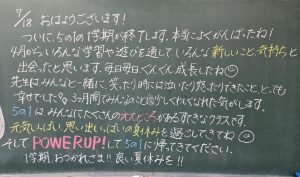 7/18 おはようございます！
ついに、5の1の1学期が終了します。本当によくがんばったね！
4月から、いろんな学習や遊びを通して、いろんな新しいこと、気持ちと
出会ったと思います。毎日毎日ぐんぐん成長したね
先生はみんなと一緒に、笑ったり時には泣いたり、たりできたこと、とっても
幸せでした 3ヶ月間でみんなのことばくれた気がします。
5の1は みんなにたくさんの大大ところがあるすてきなクラスです。
元気いっぱい、思い出いっぱいの夏休みを過ごしてきてね
そして POWERUP!して5の1に帰ってきてください。
1学期、おつかれさま!! 良い夏休みを!!